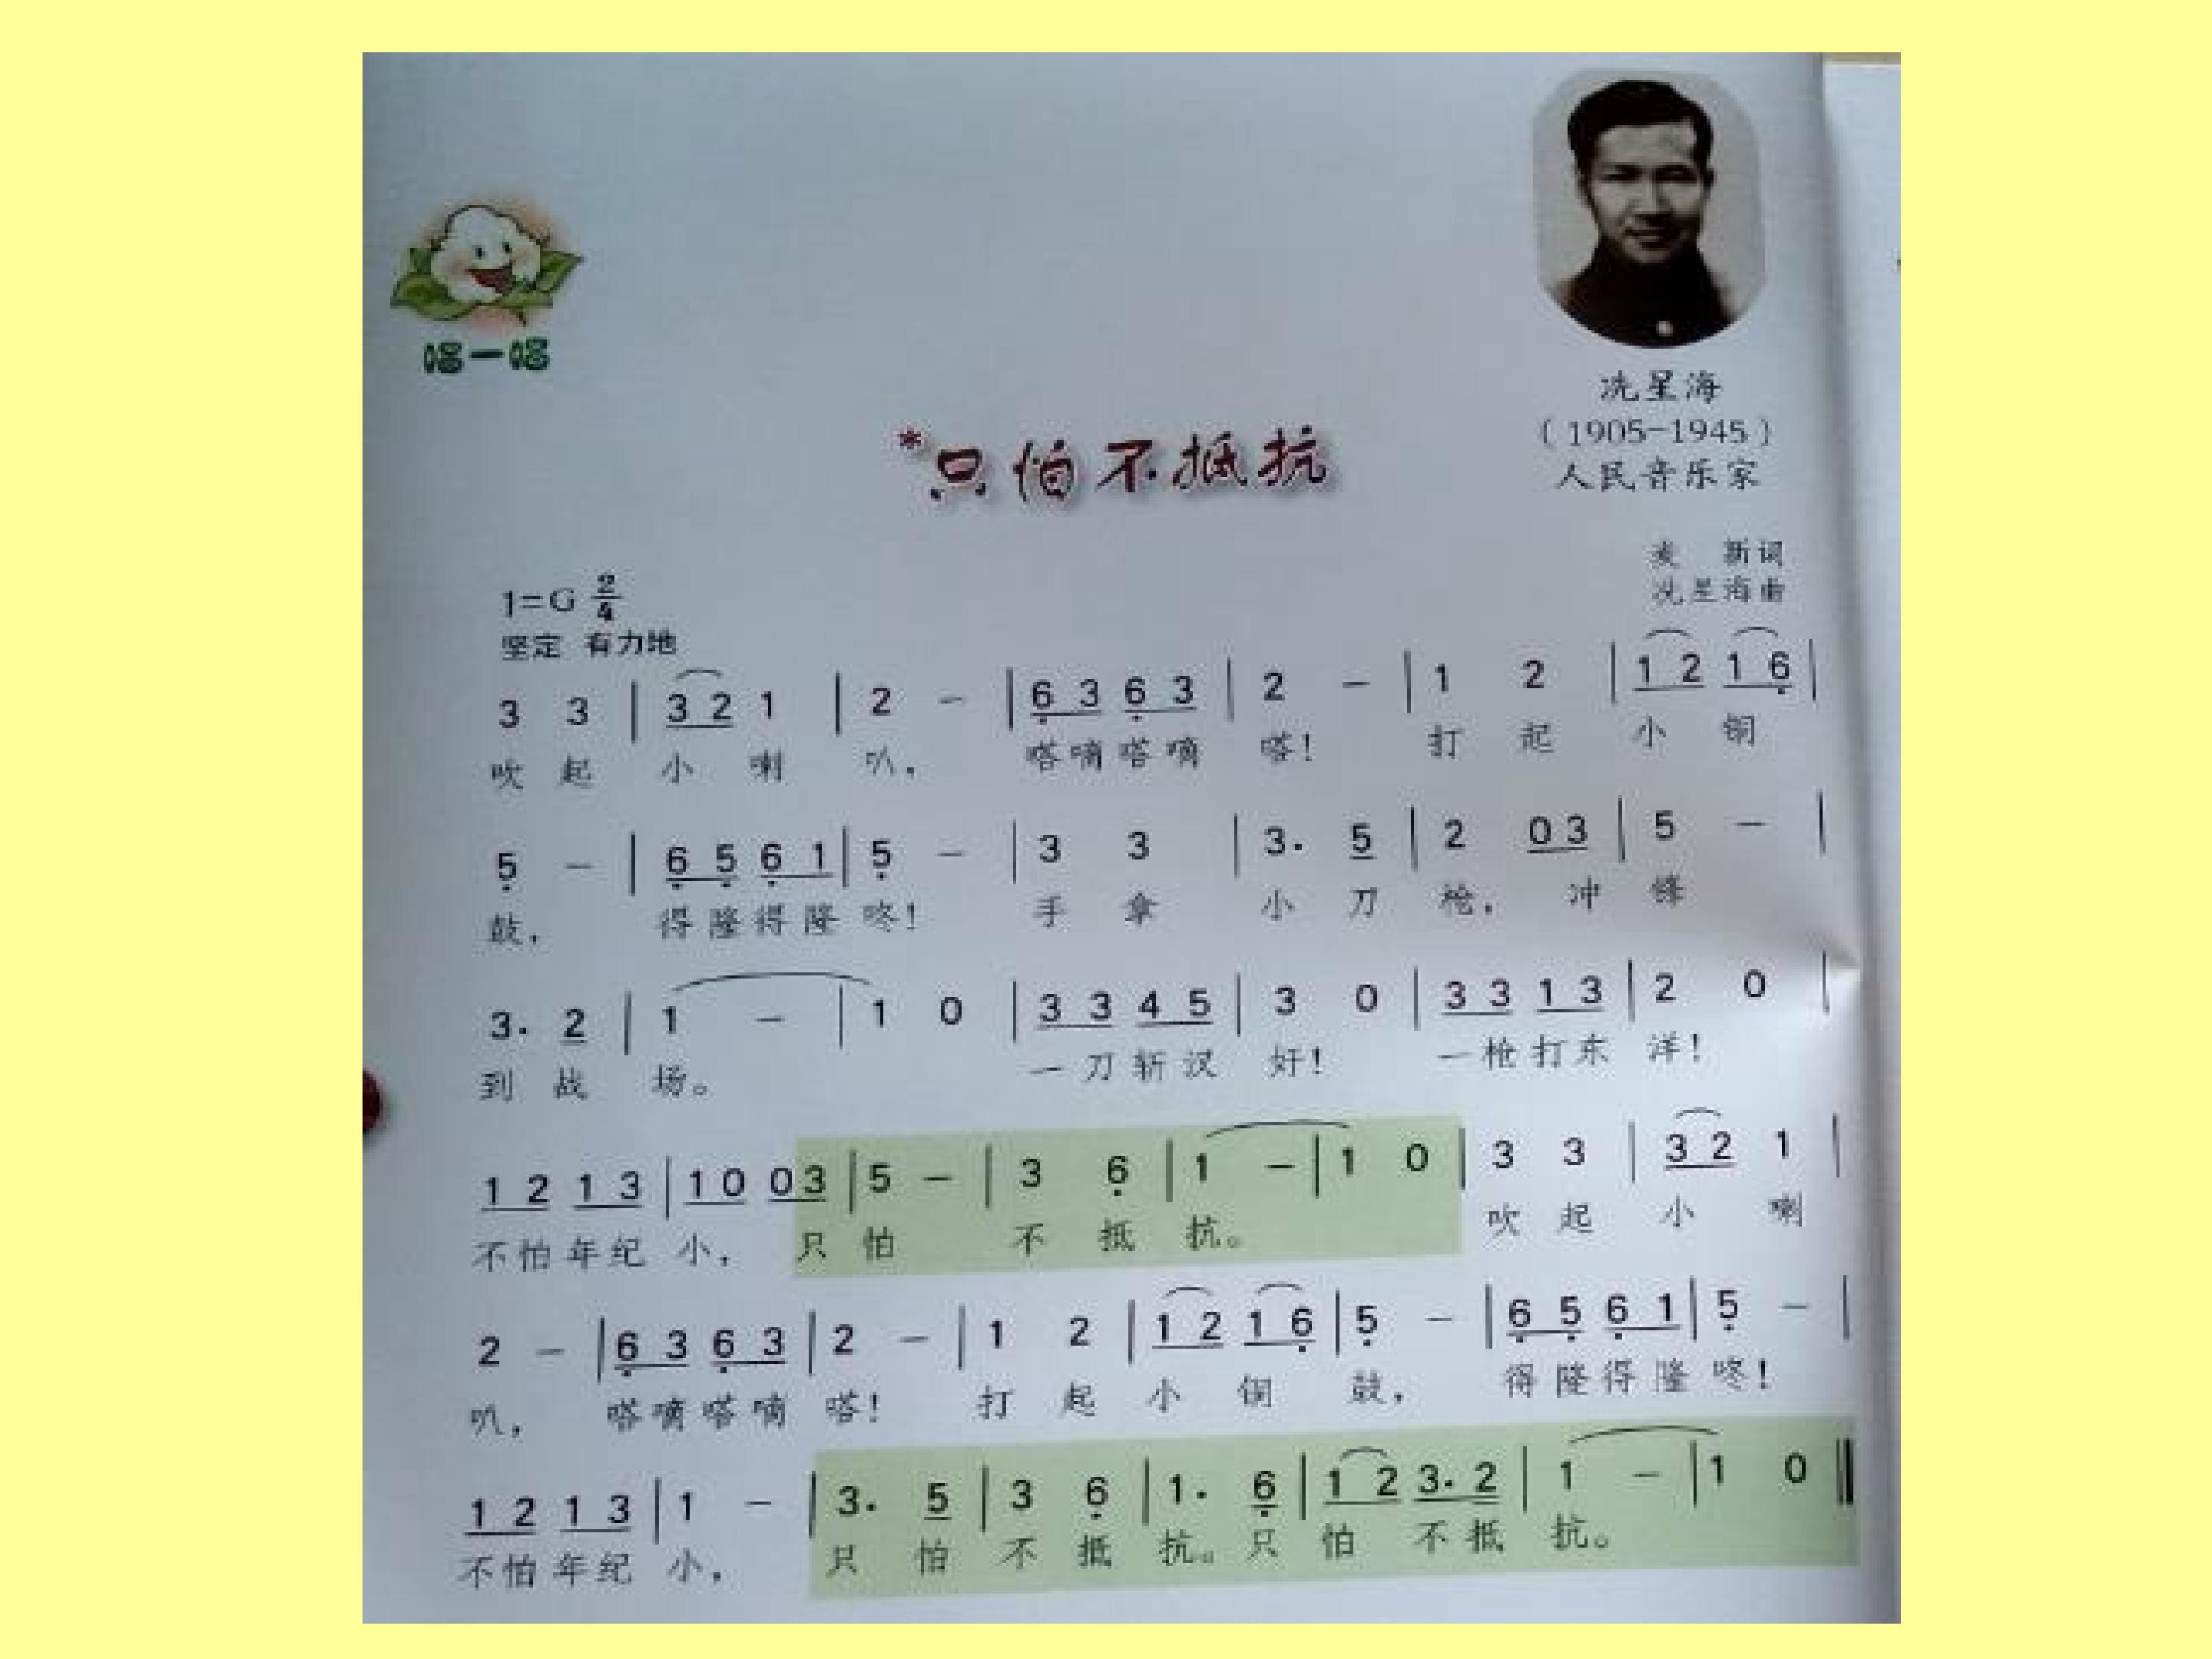 唱一唱
冼星海
(1905-1945)
人民音乐家
*只怕不抵抗
麦 新词
冼星海曲
1=G 2/4
坚定 有力地
3 3 | 3 2 1 | 2 - | 6̣ 3 6̣ 3 | 2 - | 1 2 | 1 2 1 6̣ |
吹 起 小 喇 叭， 嗒嘀嗒嘀 嗒！ 打 起 小 铜
5̣ - | 6̣ 5̣ 6̣ 1 | 5̣ - | 3 3 | 3. 5 | 2 0 3 | 5 - |
鼓， 得隆得隆 咚！ 手 拿 小 刀 枪， 冲 锋
3. 2 | 1 - | 1 0 | 3 3 4 5 | 3 0 | 3 3 1 3 | 2 0 |
到 战 场。 一刀斩汉 奸！ 一枪打东 洋！
1 2 1 3 | 1 0 0 3 | 5 - | 3 6̣ | 1 - | 1 0 | 3 3 | 3 2 1 |
不怕年纪 小， 只 怕 不 抵 抗。 吹 起 小 喇
2 - | 6̣ 3 6̣ 3 | 2 - | 1 2 | 1 2 1 6̣ | 5̣ - | 6̣ 5̣ 6̣ 1 | 5̣ - |
叭， 嗒嘀嗒嘀 嗒！ 打 起 小 铜 鼓， 得隆得隆 咚！
1 2 1 3 | 1 - | 3. 5 | 3 6̣ | 1. 6̣ | 1 2 3. 2 | 1 - | 1 0 ‖
不怕年纪 小， 只 怕 不 抵 抗。只 怕 不 抵 抗。